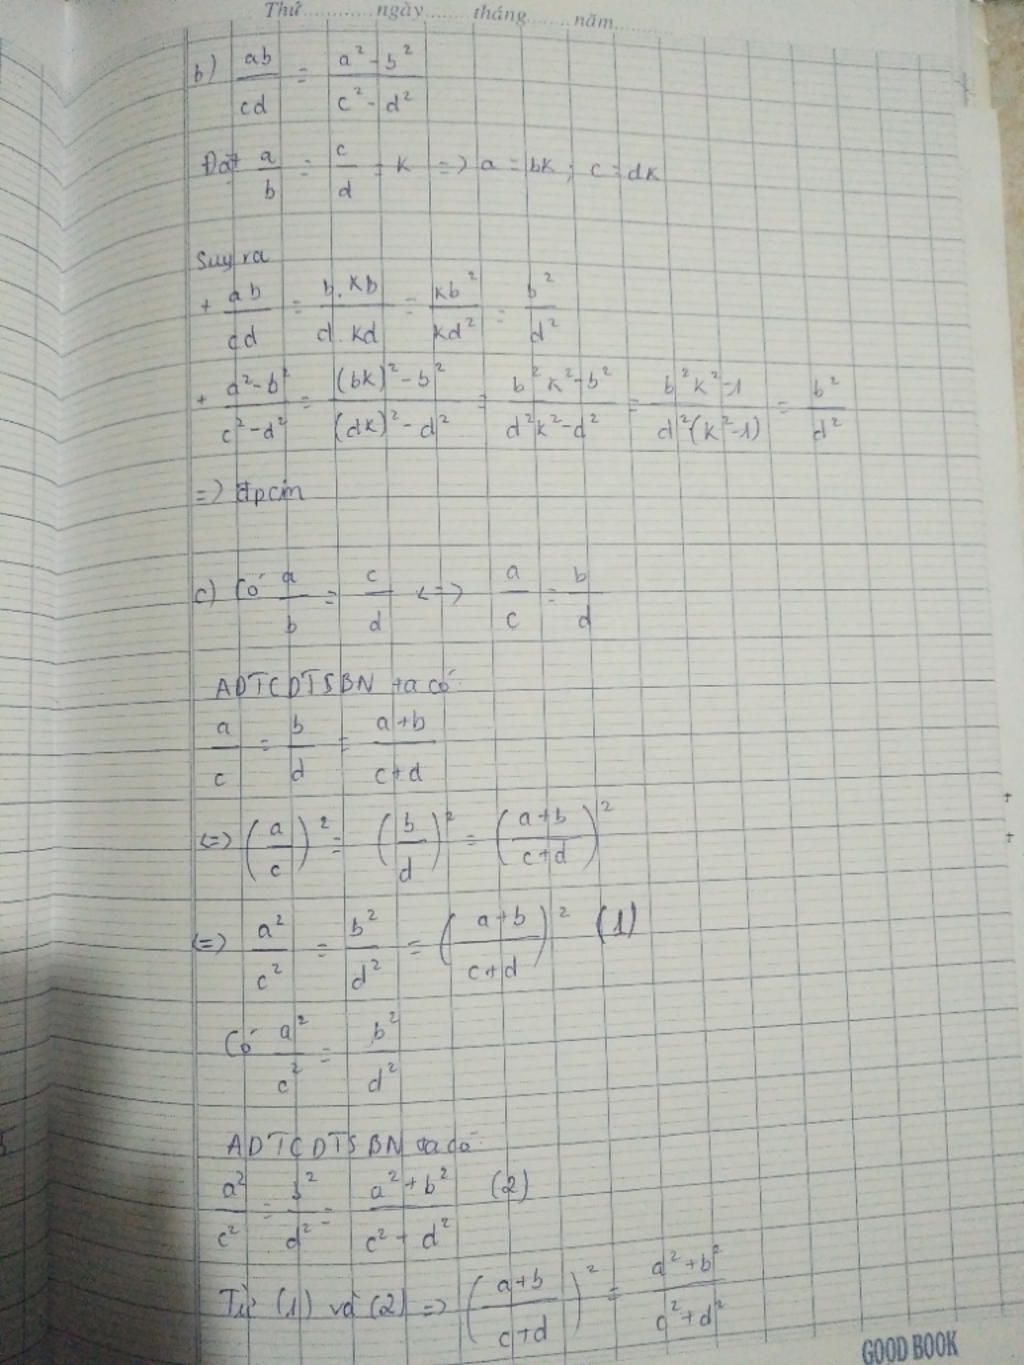 Thứ............ngày.......tháng.......năm.........
b) ab/cd = (a² - b²)/(c² - d²)
Đặt a/b = c/d = k => a = bk ; c = dk
Suy ra
+ ab/cd = (b.kb)/(d.kd) = kb²/kd² = b²/d²
+ (a²-b²)/(c²-d²) = ((bk)²-b²)/((dk)²-d²) = (b²k²-b²)/(d²k²-d²) = (b²k²-1)/(d²(k²-1)) = b²/d²
=> đpcm
c) Có a/b = c/d <=> a/c = b/d
ADTCDTSBN ta có:
a/c = b/d = (a+b)/(c+d)
<=> (a/c)² = (b/d)² = ((a+b)/(c+d))²
<=> a²/c² = b²/d² = ((a+b)/(c+d))² (1)
Có a²/c² = b²/d²
ADTCDTSBN ta có:
a²/c² = b²/d² = (a²+b²)/(c²+d²) (2)
Từ (1) và (2) => ((a+b)/(c+d))² = (a²+b²)/(c²+d²)
GOOD BOOK